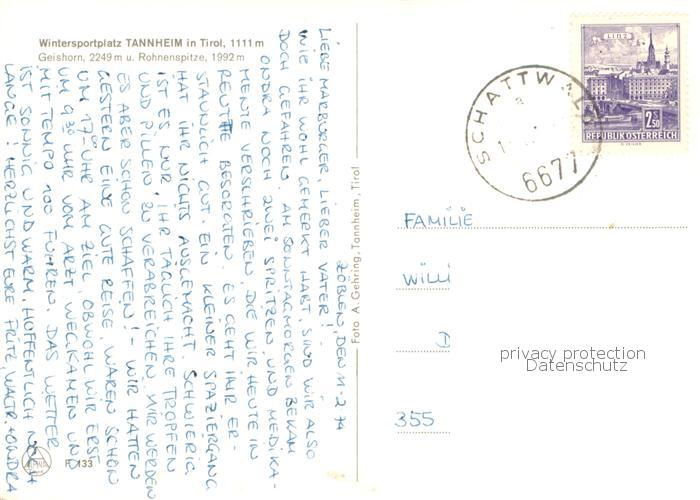 Wintersportplatz TANNHEIM in Tirol, 1111 m
Geishorn, 2249 m u. Rohnenspitze, 1992 m
ZÖBLEN, DEN 11.2.74
LIEBE MARBURGER, LIEBER VATER!
WIE IHR WOHL GEMERKT HABT, SIND WIR ALSO
DOCH GEFAHREN. AM SONNTAGMORGEN BEKAM
ONDRA NOCH ZWEI SPRITZEN UND MEDIKA-
MENTE VERSCHRIEBEN, DIE WIR HEUTE IN
REUTTE BESORGTEN. ES GEHT IHR ER-
STAUNLICH GUT. EIN KLEINER SPAZIERGANG
HAT IHR NICHTS AUSGEMACHT. SCHWIERIG
IST ES NUR, IHR TÄGLICH IHRE TROPFEN
UND PILLEN ZU VERABREICHEN. WIR WERDEN
ES ABER SCHON SCHAFFEN! – WIR HATTEN
GESTERN EINE GUTE REISE, WAREN SCHON
UM 17 UHR AM ZIEL, OBWOHL WIR ERST
UM 9 30 UHR VOM ARZT WEGKAMEN UND
MIT TEMPO 100 FUHREN. DAS WETTER
IST SONNIG UND WARM, HOFFENTLICH NOCH
LANGE! HERZLICHST EURE FRITZ, WALTR. + ONDRA
F 133
Foto A. Gehring, Tannheim, Tirol
LINZ
2.50
REPUBLIK ÖSTERREICH
SCHATTWALD
6677
FAMILIE
WILLI
D
355
privacy protection
Datenschutz